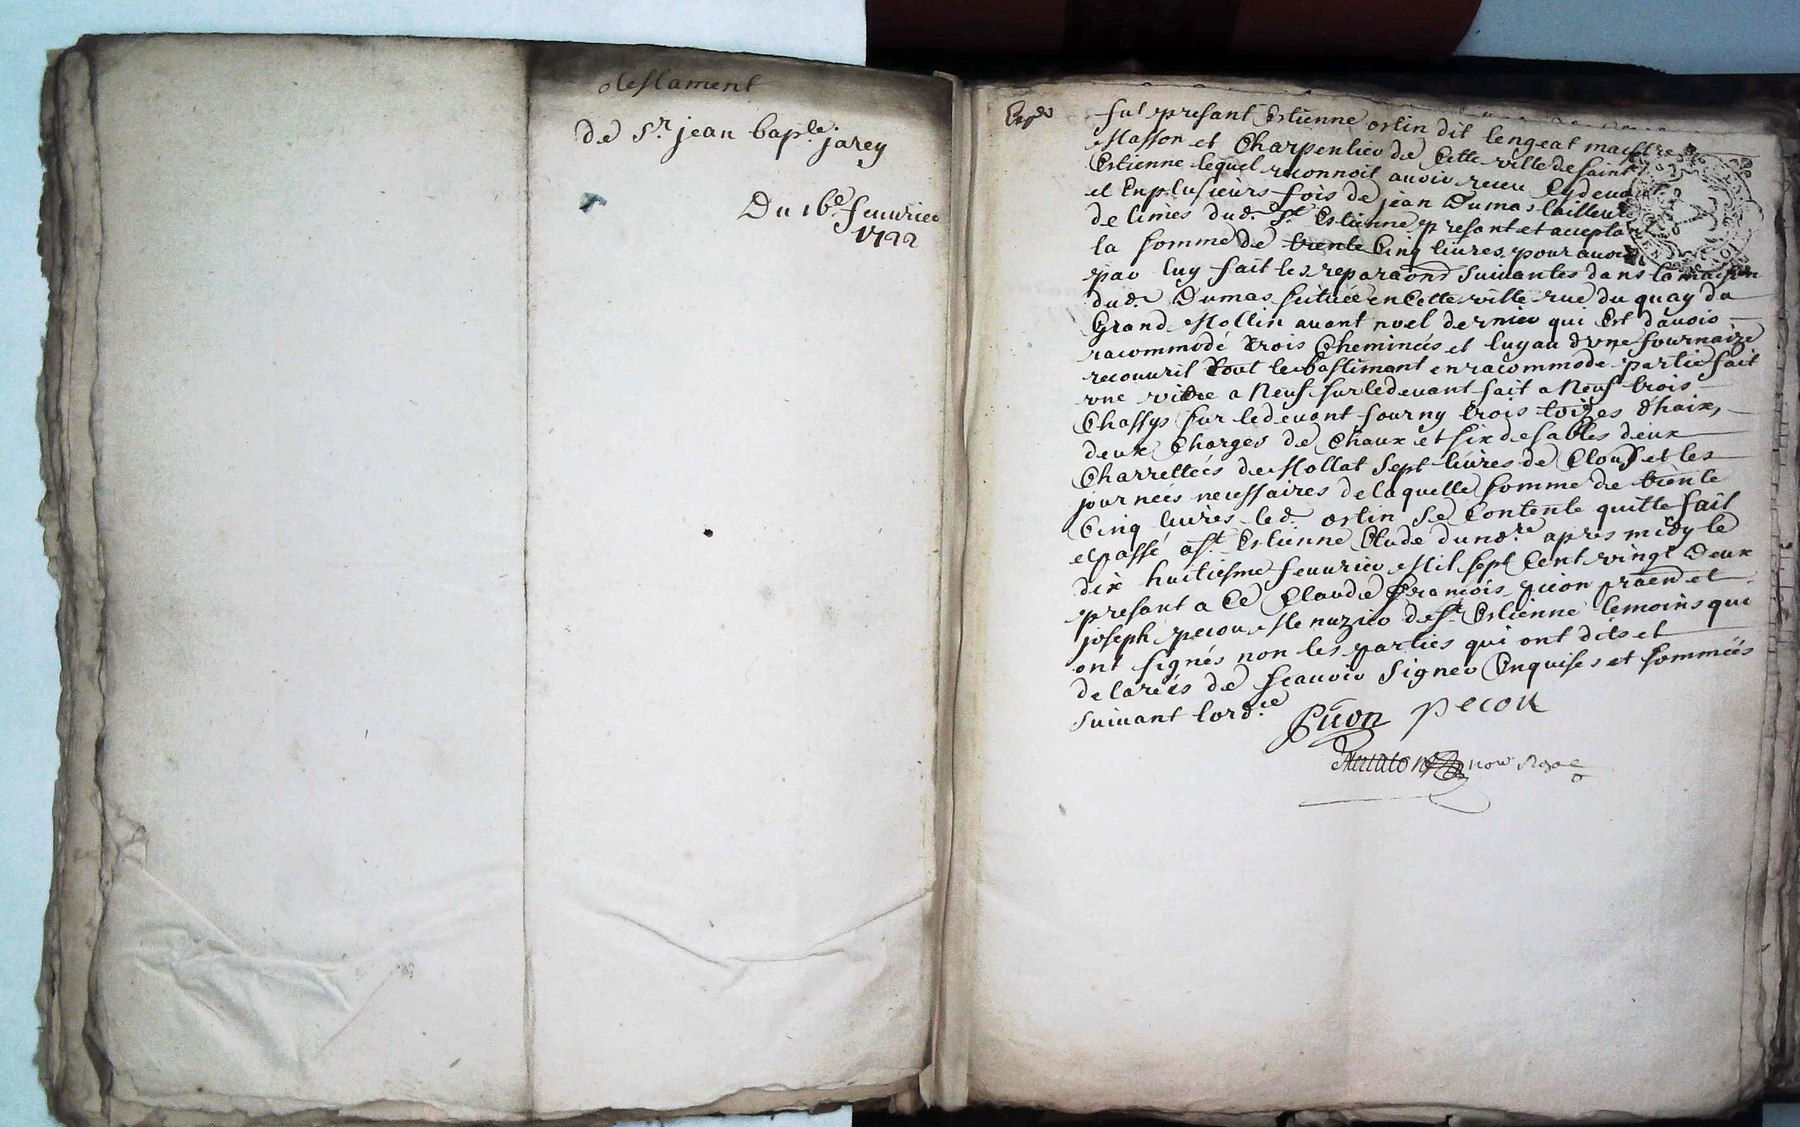 testament
de Sr. jean bapte. jarey
Du 16e. feuurier
1722
Expdé
fut presant Estienne ostin dit lengeat maistre
Masson et Charpentier de Cette ville de Saint
Estienne lequel reconnoit auoir receu Cydeuant
et Enplusieurs fois de jean Dumas tailleur
de limes dud. St. Estienne presant et accepta
la somme de trente Cinq liures pour auoir
par luy fait les reparaons suiuantes dans la maison
dud. Dumas scituée en Cette ville rue du quay du
Grand Mollin auant noel dernier qui Est dauoir
racommodé trois Cheminées et tuyau dvne fournaize
recouurit tout le bastimant en racommodé partie fait
vne vittre a Neuf sur ledeuant fait a Neuf trois
Chassys sur ledeuant fourny trois toizes dhaix,
deux Charges de Chaux et six desables deux
Charrettées de Mollat Sept liures de Clous et les
journées necessaires delaquelle somme de trente
Cinq liures led. ostin se Contente quitte fait
et passé a St. Estienne Etude du nore. apres midy le
dix huitiesme feuurier Mil sept Cent vingt Deux
presant a Ce Claude François puion praen et
joseph pecou Menuzier de St. Estienne temoins qui
ont signés non les parties qui ont dits et
delarées de scauoir signer Enquises et sommées
suiuant lordce.
Püon pecou